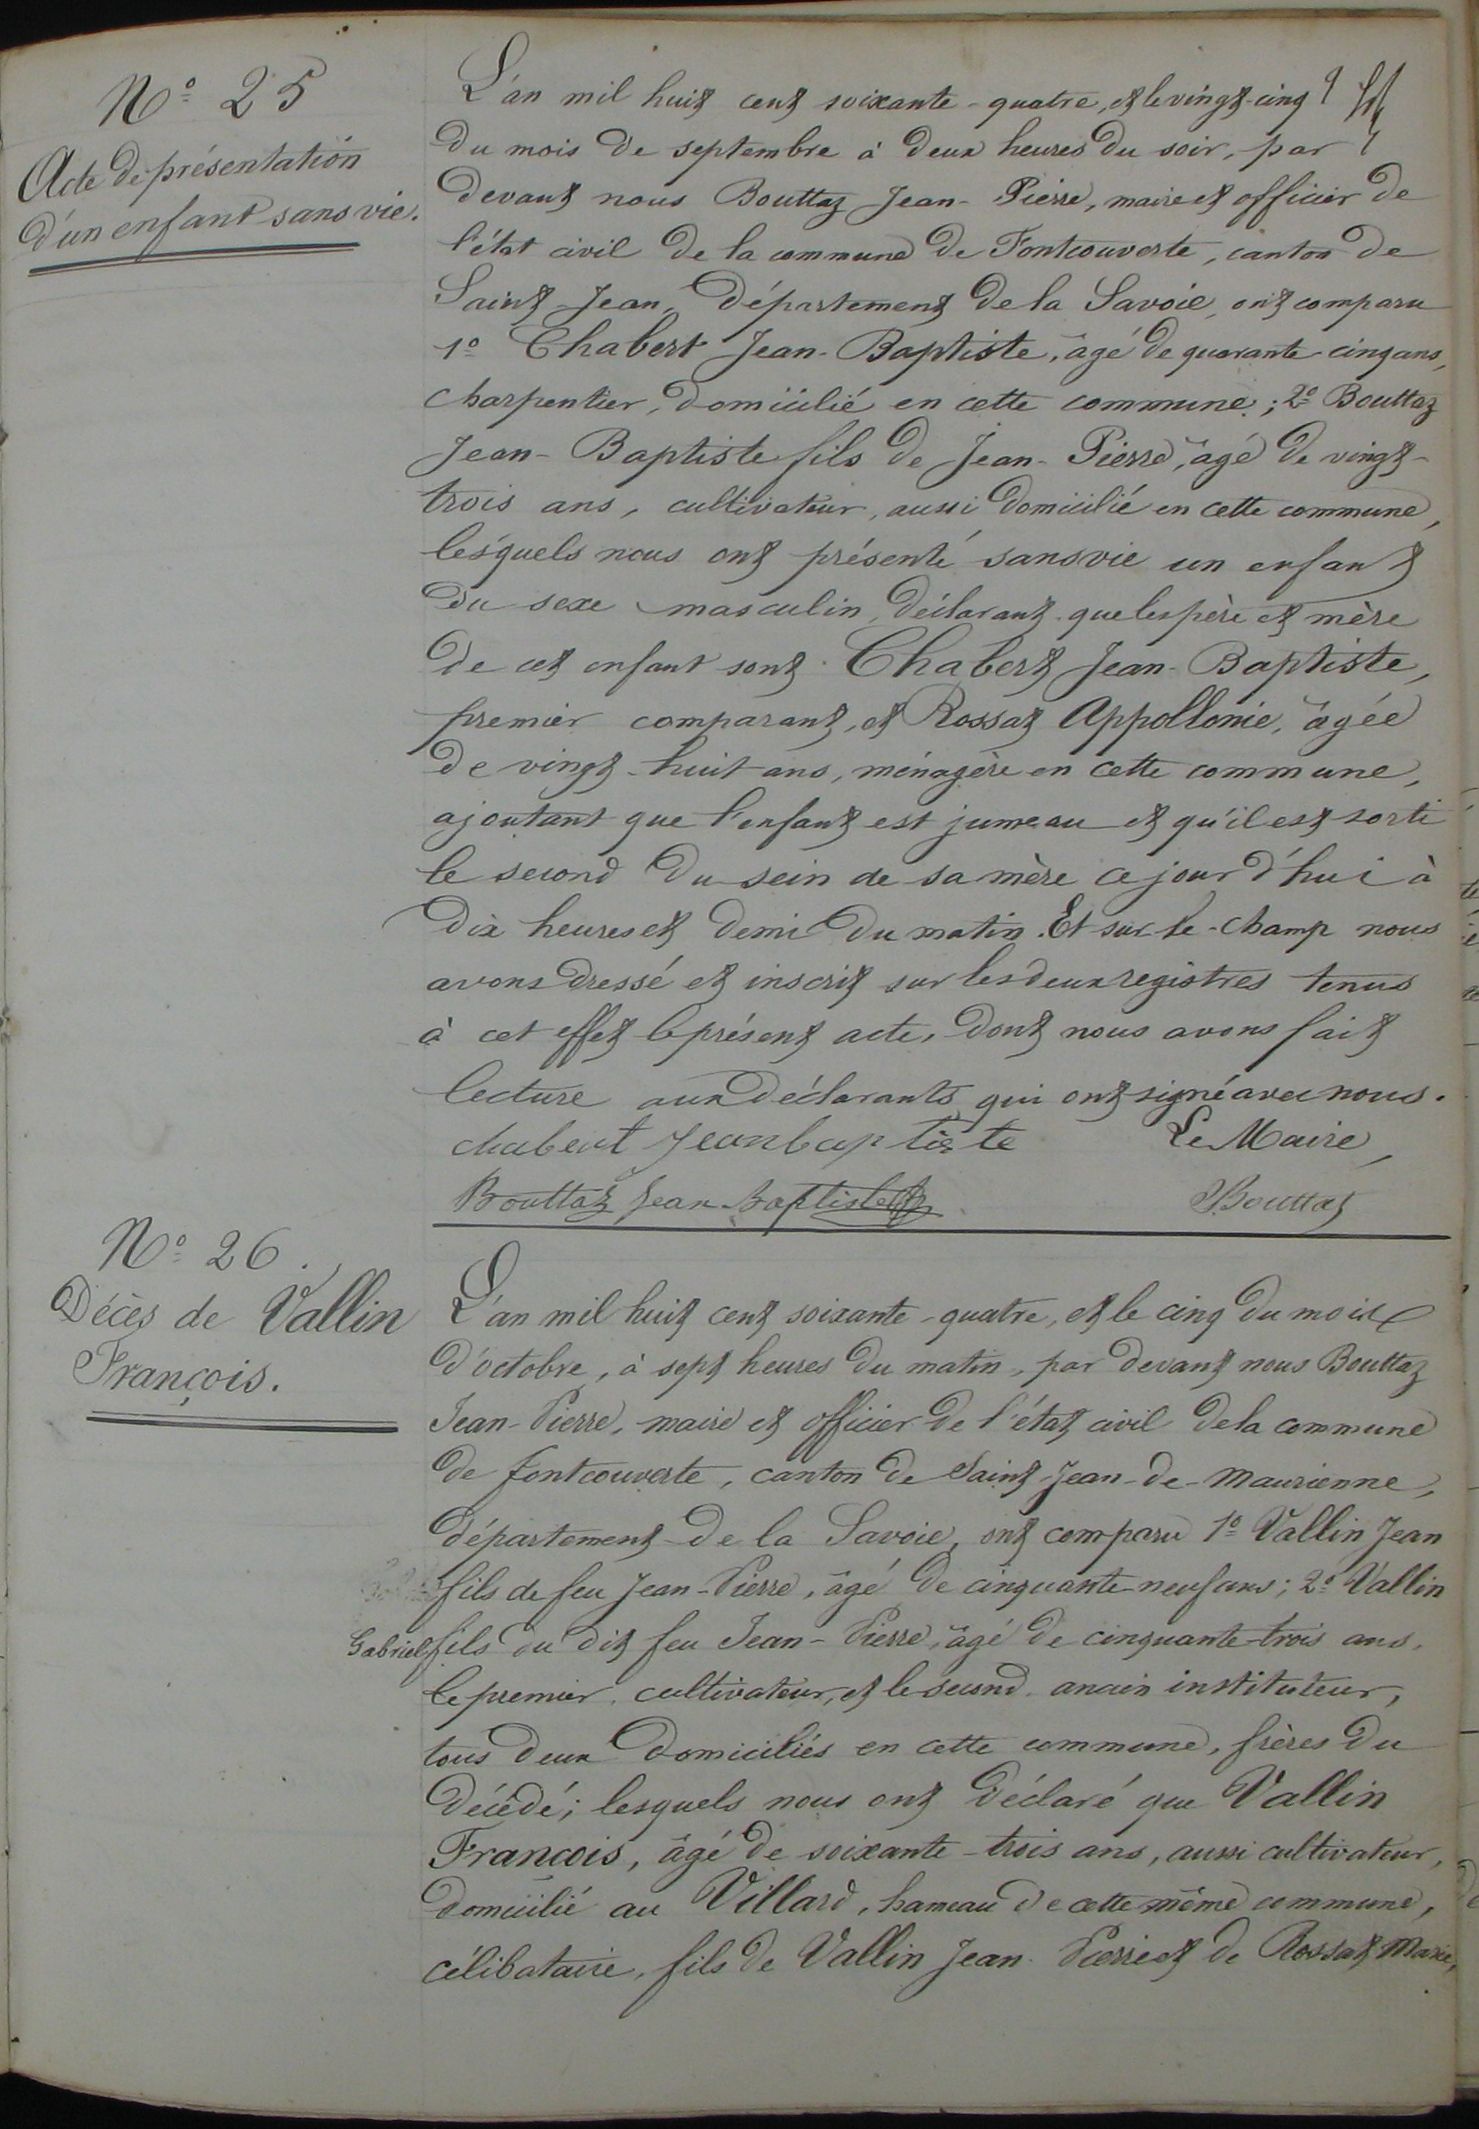 N° 25
Acte de présentation
d'un enfant sans vie.
L'an mil huit cent soixante-quatre, et le vingt-cinq
du mois de septembre à deux heures du soir, par
devant nous Bouttaz Jean-Pierre, maire et officier de
l'état civil de la commune de Fontcouverte, canton de
Saint-Jean, département de la Savoie, ont comparu
1° Chabert Jean-Baptiste, âgé de quarante-cinq ans,
charpentier, domicilié en cette commune; 2° Bouttaz
Jean-Baptiste fils de Jean-Pierre, âgé de vingt-
trois ans, cultivateur, aussi domicilié en cette commune,
lesquels nous ont présenté sans vie un enfant
du sexe masculin, déclarant que les père et mère
de cet enfant sont Chabert Jean-Baptiste,
premier comparant, et Rossat Appollonie, âgée
de vingt-huit ans, ménagère en cette commune,
ajoutant que l'enfant est jumeau et qu'il est sorti
le second du sein de sa mère ce jour d'hui à
dix heures et demi du matin. Et sur-le-champ nous
avons dressé et inscrit sur les deux registres tenus
à cet effet le présent acte, dont nous avons fait
lecture aux déclarants qui ont signé avec nous.
chabert Jeanbaptiste Le Maire,
Bouttaz Jean-Baptiste Bouttaz
N° 26.
Décès de Vallin
François.
L'an mil huit cent soixante-quatre, et le cinq du mois
d'octobre, à sept heures du matin, par devant nous Bouttaz
Jean-Pierre, maire et officier de l'état civil de la commune
de fontcouverte, canton de Saint-Jean-de-Maurienne,
département de la Savoie, ont comparu 1° Vallin Jean
fils de feu Jean-Pierre, âgé de cinquante-neuf ans; 2° Vallin
Gabriel fils du dit feu Jean-Pierre, âgé de cinquante-trois ans,
le premier cultivateur, et le second ancien instituteur,
tous deux domiciliés en cette commune, frères du
décédé; lesquels nous ont déclaré que Vallin
François, âgé de soixante-trois ans, aussi cultivateur,
domicilié au Villard, hameau de cette même commune,
célibataire, fils de Vallin Jean-Pierre et de Rossat Marie,